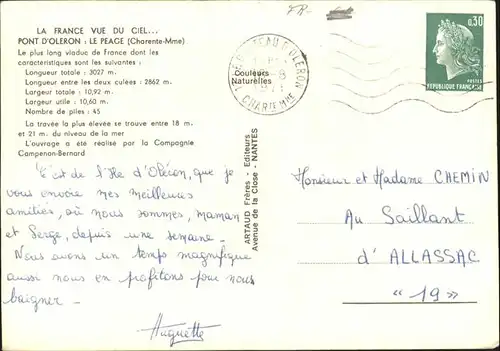 FR-
LA FRANCE VUE DU CIEL...
PONT D'OLERON : LE PEAGE (Charente-Mme)
Le plus long viaduc de France dont les
caractéristiques sont les suivantes :
Longueur totale : 3027 m.
Longueur entre les deux culées : 2862 m.
Largeur totale : 10,92 m.
Largeur utile : 10,60 m.
Nombre de piles : 45
La travée la plus élevée se trouve entre 18 m.
et 21 m. du niveau de la mer
L'ouvrage a été réalisé par la Compagnie
Campenon-Bernard
Couleurs
Naturelles
ARTAUD Frères - Editeurs
Avenue de la Close - NANTES
0,30
POSTES
REPUBLIQUE FRANÇAISE
C'est de l'Ile d'Oléron, que je
vous envoie mes meilleures
amitiés, où nous sommes, maman
et Serge, depuis une semaine.
Nous avons un temps magnifique
aussi nous en profitons pour nous
baigner.
Huguette
Monsieur et Madame CHEMIN
Au Saillant
d'ALLASSAC
"19"